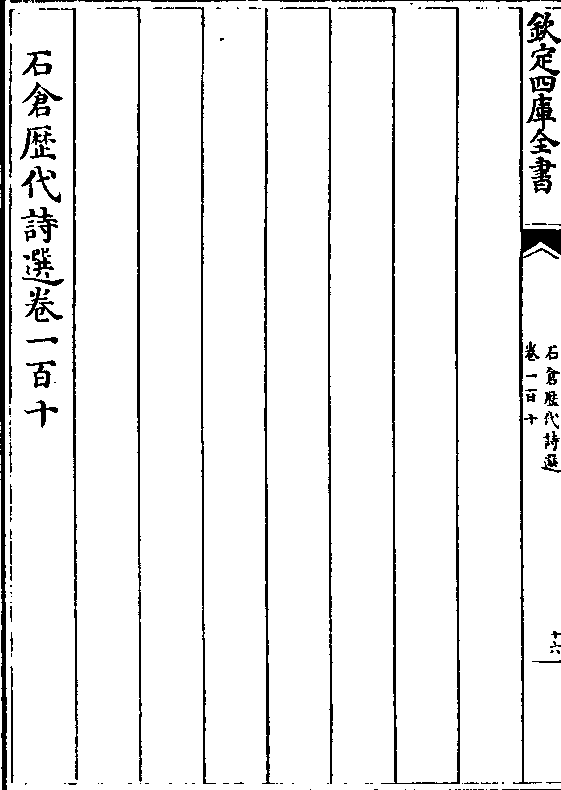 欽定四庫全書
石倉歴代詩選
卷一百十
十六
石倉歴代詩選卷一百十